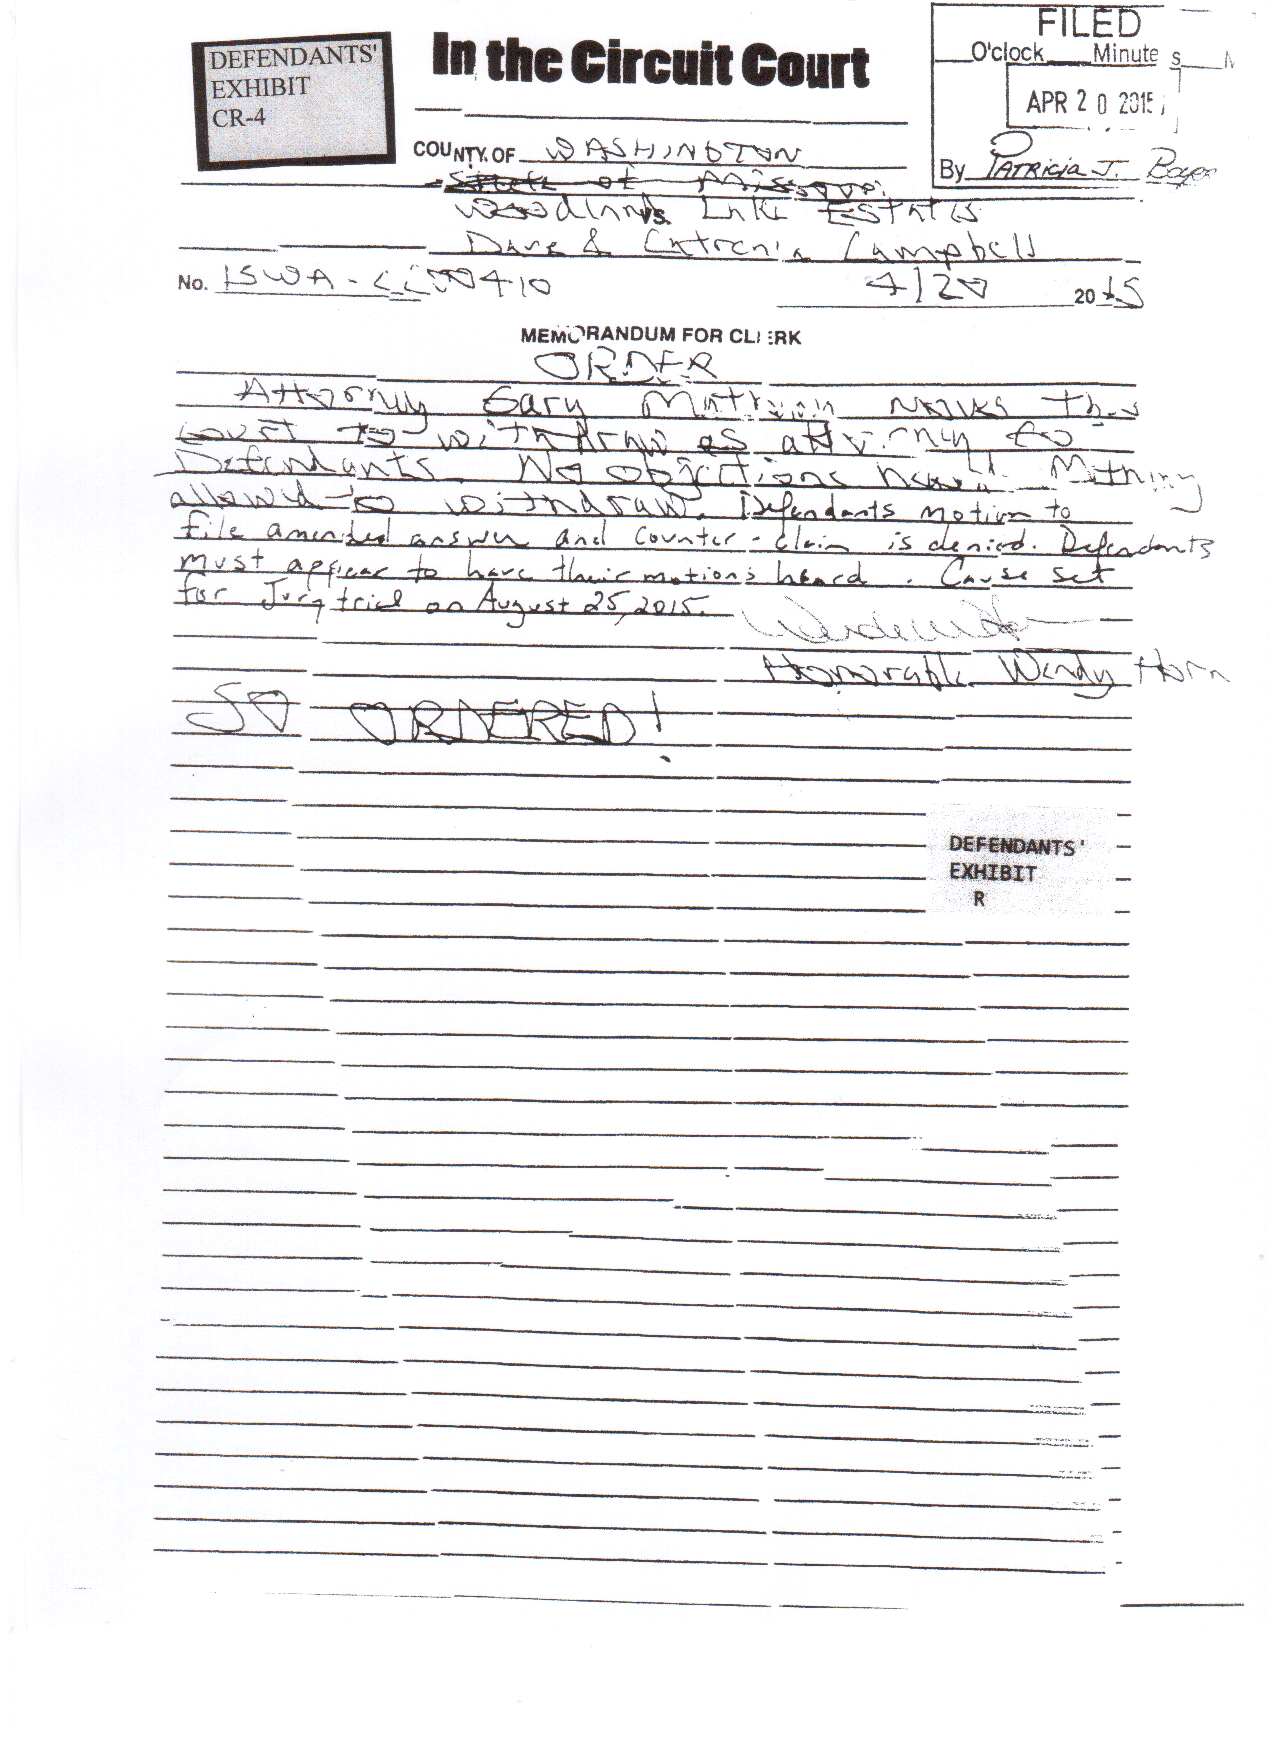 DEFENDANTS'
EXHIBIT
CR-4
In the Circuit Court
FILED
O'clock Minute s M
APR 20 2015
By Patricia J. Boyer
COUNTY OF WASHINGTON
State of Missouri
Woodland Lake Estates
vs.
Dave & Catrenia Campbell
No. 15WA-CC00410
4/20 2015
MEMORANDUM FOR CLERK
ORDER
Attorney Gary Moves this
court to withdraw as attorney for
Defendants. No objections heard.
allowed to withdraw. Defendants motion to
file amended answer and counter-claim is denied. Defendants
must appear to have their motions heard. Cause set
for Jury trial on August 25, 2015.
Honorable Wendy Horn
SO ORDERED!
DEFENDANTS'
EXHIBIT
R